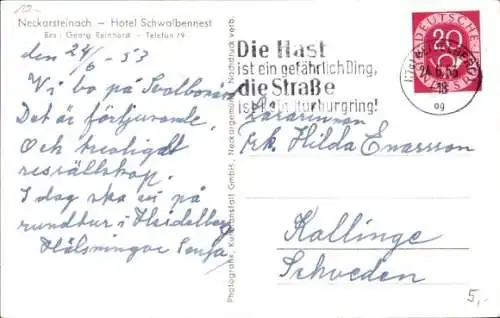 10.-
Neckarsteinach — Hotel Schwalbennest
Bes.: Georg Reinhard — Telefon 79
den 24/6 - 53
Vi bo på Svalbonäst
Det är förtjusande.
Och trevligt
resällskap.
I dag ska vi på
rundtur i Heidelberg
Hälsningar
Photografie, Kunstanstalt GmbH., Neckargemünd Nachdruck verb.
Die Hast
ist ein gefährlich Ding,
die Straße
ist kein Nürburgring!
DEUTSCHE
20
18
Lärarinnan
Frk. Hilda Enarsson
Kallinge
Schweden
5,-